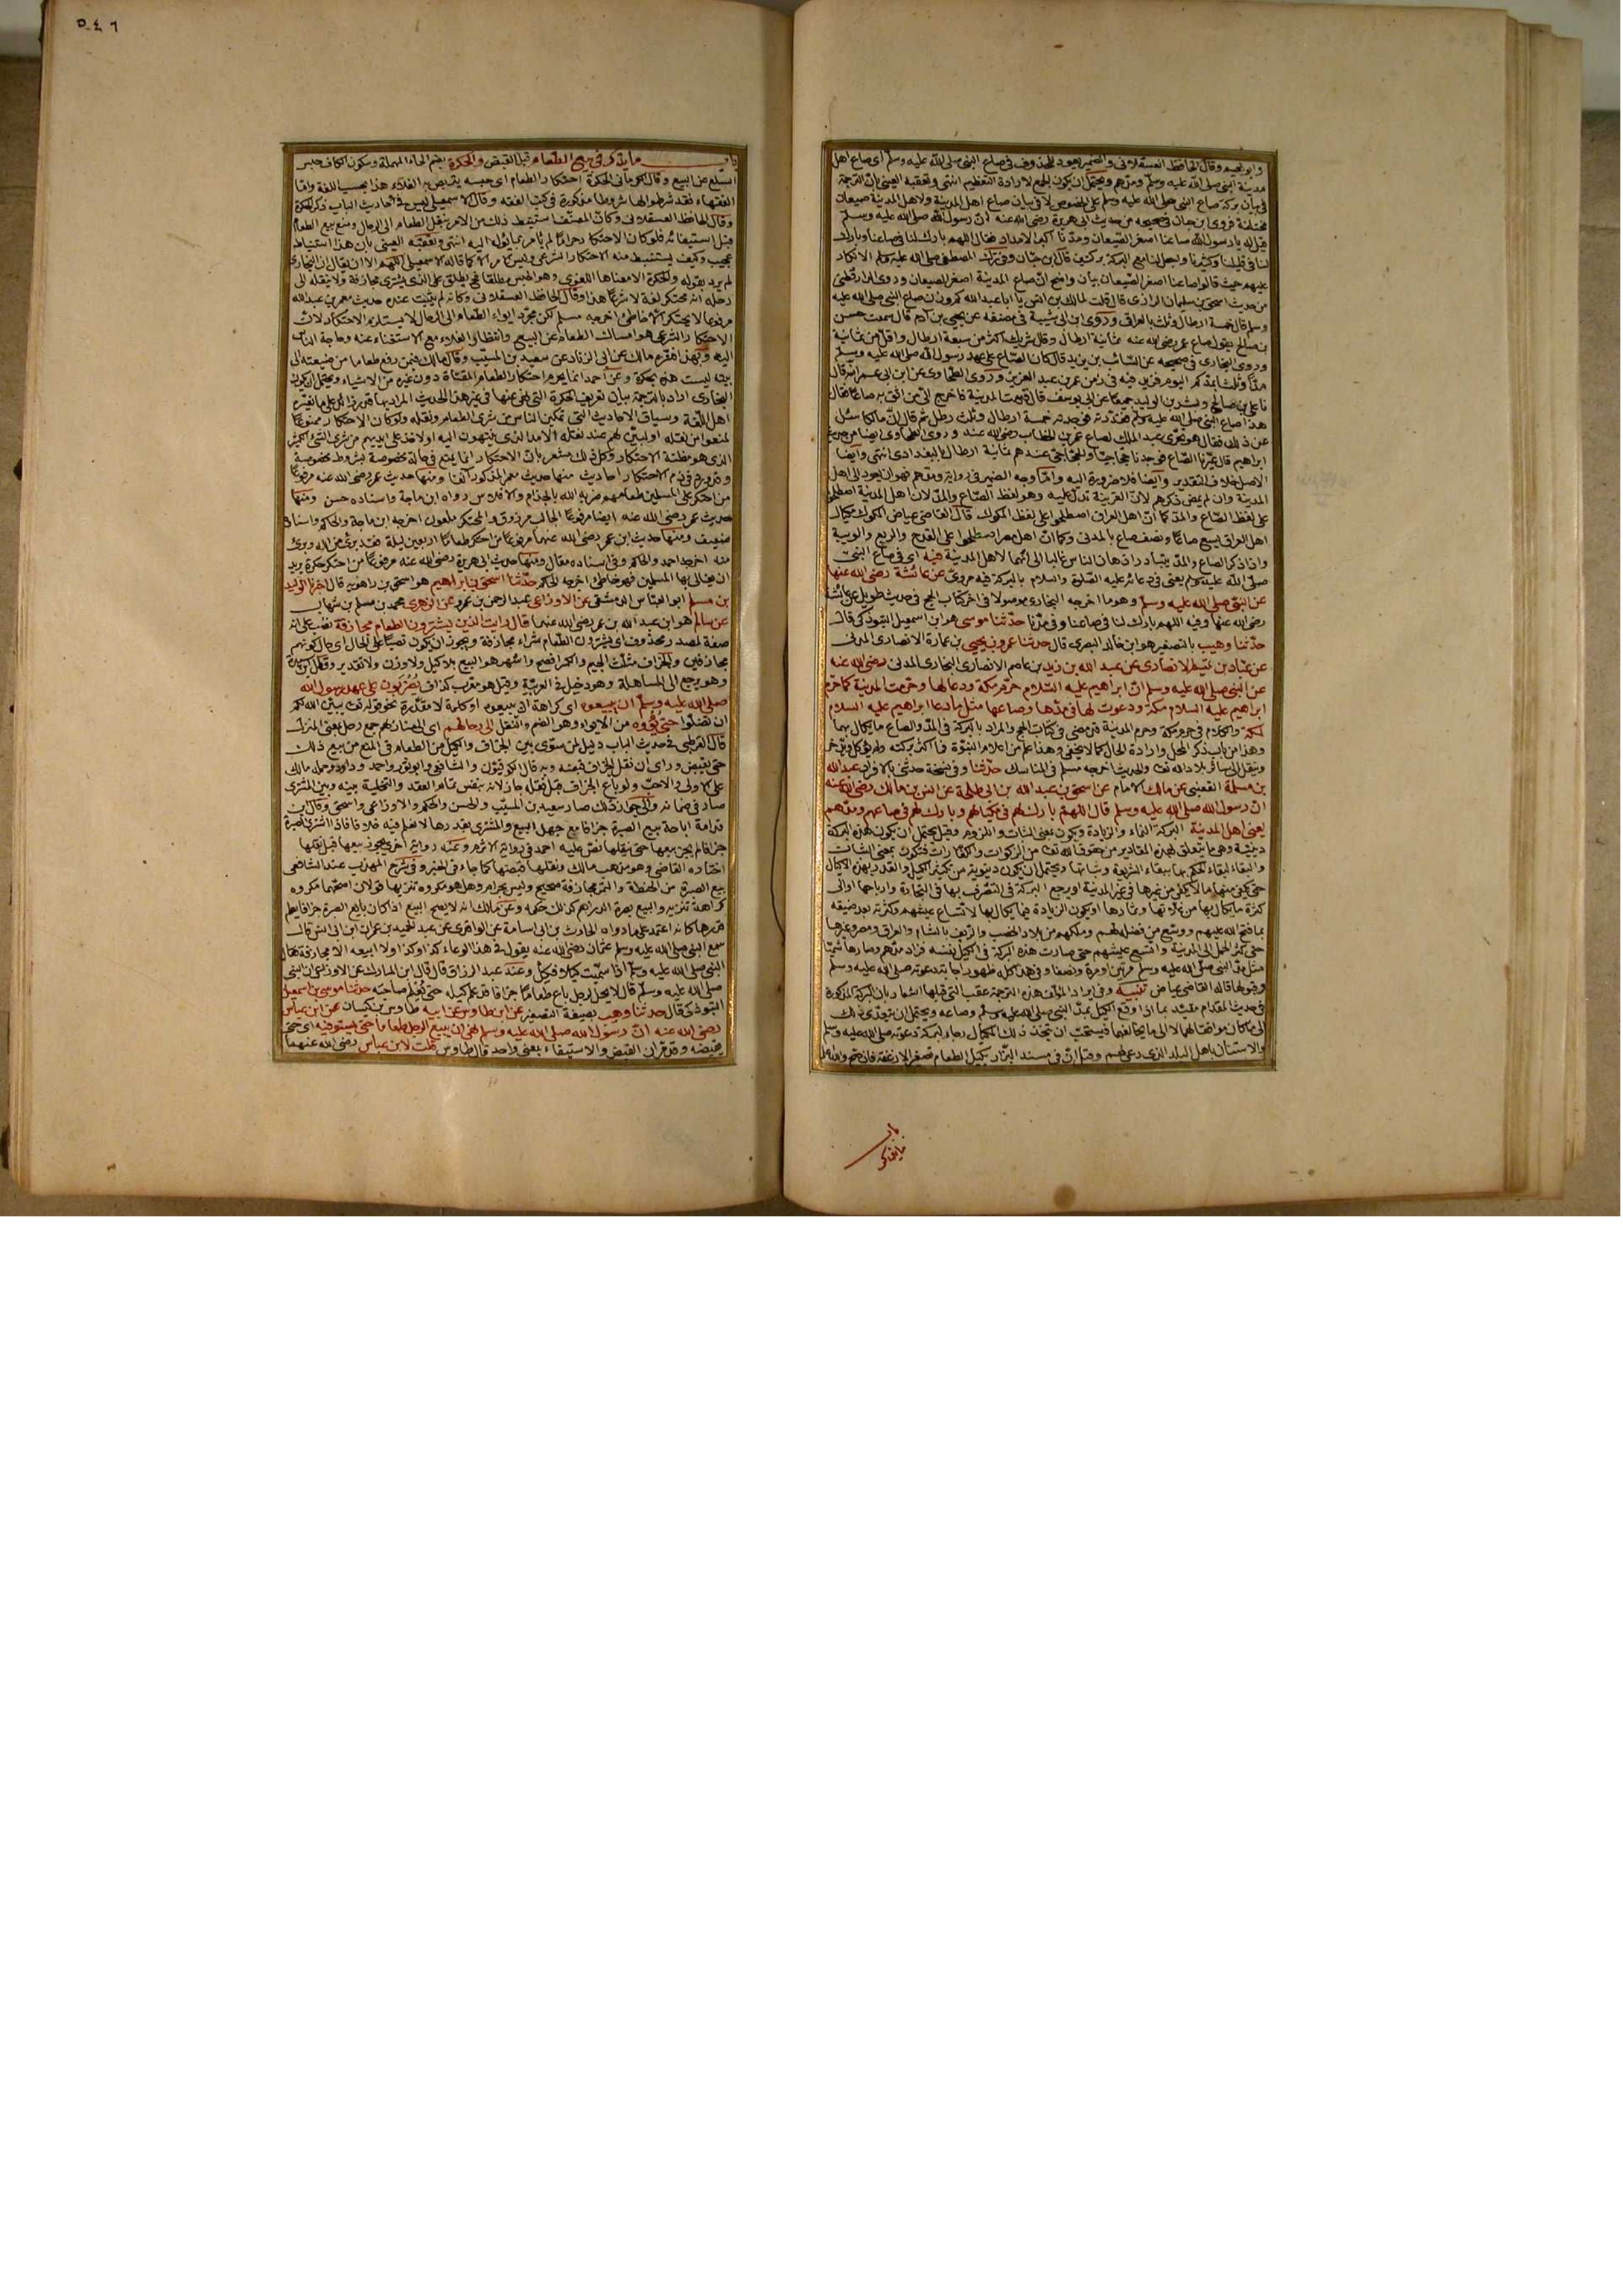 وابو نعيم وقال الحافظ العسقلاني والضمير يعود للمحذوف في صاع النبي صلى الله عليه وسلم اي صاع اهل
مدينة النبي صلى الله عليه وسلم ومدهم ويحتمل ان يكون الجمع لارادة التعظيم انتهى وتعقبه العيني بان الترجمة
في بيان بركة صاع النبي صلى الله عليه وسلم على الخصوص لا في بيان صاع اهل المدينة ولاهل المدينة صيعان
مختلفة فروى ابن حبان في صحيحه من حديث ابي هريرة رضي الله عنه ان رسول الله صلى الله عليه وسلم
قيل له يا رسول الله صاعنا اصغر الصيعان ومدنا اكبر الامداد فقال اللهم بارك لنا في صاعنا وبارك
لنا في قليلنا وكثيرنا واجعل لنا مع البركة بركتين قال ابن حبان وفي ترك المصطفى صلى الله عليه وسلم الانكار
عليهم حيث قالوا صاعنا اصغر الصيعان بيان واضح ان صاع المدينة اصغر الصيعان وروى الدارقطني
من حديث اسحق بن سليمان الرازي قال قلت لمالك بن انس يا ابا عبد الله كم وزن صاع النبي صلى الله عليه
وسلم قال خمسة ارطال وثلث بالعراقي وروى ابن ابي شيبة في مصنفه عن يحيى بن ادم قال سمعت حسن
بن صالح يقول صاع عمر رضي الله عنه ثمانية ارطال وقال شريك اكثر من سبعة ارطال واقل من ثمانية
وروى البخاري في صحيحه عن السائب بن يزيد قال كان الصاع على عهد رسول الله صلى الله عليه وسلم
مدا وثلثا بمدكم اليوم فزيد فيه في زمن عمر بن عبد العزيز وروى الطحاوي عن ابن ابي عمران قال
نا علي بن صالح وبشر بن الوليد جميعا عن ابي يوسف قال قدمت المدينة فاخرج الي من اثق به صاعا فقال
هذا صاع النبي صلى الله عليه وسلم فقدرته فوجدته خمسة ارطال وثلث رطل ثم قال ان مالكا سئل
عن ذلك فقال هو تحري عبد الملك لصاع عمر بن الخطاب رضي الله عنه وروى الطحاوي ايضا من حديث
ابراهيم قال عيرنا الصاع فوجدنا حجاجيا والحجاجي عندهم ثمانية ارطال بالبغدادي انتهى وايضا
الاصل خلاف التقدير وايضا فلا ضرورة اليه واما وجه الضمير في رواية ومدهم فهو ان يعود الى اهل
المدينة وان لم يمض ذكرهم لان القرينة تدل عليه وهو لفظ الصاع والمد لان اهل المدينة اصطلحوا
على لفظ الصاع والمد كما ان اهل العراق اصطلحوا على لفظ المكوك قال القاضي عياض المكوك مكيال
اهل العراق يسع صاعا ونصف صاع بالمدني وكما ان اهل مصر اصطلحوا على القدح والربع والويبة
واذا ذكر الصاع والمد يتبادر اذهان الناس غالبا الى انهما لاهل المدينة فيه اي في صاع النبي
صلى الله عليه وسلم يعني في دعائه عليه الصلوة والسلام بالبركة فيه مروي عن عائشة رضي الله عنها
عن النبي صلى الله عليه وسلم وهو ما اخرجه البخاري موصولا في اخر كتاب الحج في حديث طويل عن عائشة
رضي الله عنها وفيه اللهم بارك لنا في صاعنا وفي مدنا حدثنا موسى هو ابن اسمعيل التبوذكي قال
حدثنا وهيب بالتصغير هو ابن خالد البصري قال حدثنا عمرو بن يحيى بن عمارة الانصاري المدني
عن عباد بن تميم الانصاري عن عبد الله بن زيد بن عاصم الانصاري البخاري المدني رضي الله عنه
عن النبي صلى الله عليه وسلم ان ابراهيم عليه السلام حرم مكة ودعا لها وحرمت المدينة كما حرم
ابراهيم عليه السلام مكة ودعوت لها في مدها وصاعها مثل ما دعا ابراهيم عليه السلام
لمكة والكلام في حرم مكة وحرم المدينة قد مضى في كتاب الحج والمراد بالبركة في المد والصاع ما يكال بهما
وهذا من باب ذكر المحل وارادة الحال كما لا يخفى وهذا علم من اعلام النبوة فما اكثر بركته
وينقل الى سائر بلاد الله تعالى والحديث اخرجه مسلم في المناسك حدثنا وفي نسخة حدثني بالافراد عبد الله
بن مسلمة القعنبي عن مالك الامام عن اسحق بن عبد الله بن ابي طلحة عن انس بن مالك رضي الله عنه
ان رسول الله صلى الله عليه وسلم قال اللهم بارك لهم في مكيالهم وبارك لهم في صاعهم ومدهم
يعني اهل المدينة البركة النماء والزيادة ويكون بمعنى الثبات واللزوم وقيل يحتمل ان يكون هذه البركة
دينية وهي ما يتعلق بهذه المقادير من حقوق الله تعالى من الزكوات والكفارات فتكون بمعنى الثبات
والبقاء لبقاء الحكم بها ببقاء الشريعة وثباتها ويحتمل ان يكون دنيوية من تكثير الكيل والقدر بهذه الاكيال
حتى يكفي منها ما لا يكفي من غيرها في غير المدينة او يرجع البركة في التصرف بها في التجارة وارباحها او الى
كثرة ما يكال بها من غلاتها وثمارها او يكون الزيادة فيما يكال بها لاتساع عيشهم وكثرته بعد ضيقه
بما فتح الله عليهم ووسع من فضله لهم وملكهم من بلاد الخصب والريف بالشام والعراق ومصر وغيرها
حتى كثر الحمل الى المدينة واتسع عيشهم حتى صارت هذه البركة في الكيل نفسه فزاد مدهم وصار هاشميا
مثل مد النبي صلى الله عليه وسلم مرتين او مرة ونصفا وفي هذا كله ظهور اجابة دعوته صلى الله عليه وسلم
وقبولها قاله القاضي عياض تنبيه وفي ايراد المؤلف هذه الترجمة عقب التي قبلها اشعار بان البركة المذكورة
في حديث المقدام مقيد بما اذا وقع الكيل بمد النبي صلى الله عليه وسلم وصاعه ويحتمل ان يتعدى ذلك
الى ما كان موافقا لهما لا الى ما يخالفهما فيستحب ان يتخذ ذلك المكيال رجاء لبركة دعوته صلى الله عليه وسلم
والاستنان باهل البلد الذي دعى لهم وقيل ان في مسند البزار تكييل الطعام تصغير الارغفة فان صح والله اعلم
باب
ما يذكر
٥٤٦
باب ما يذكر في بيع الطعام قبل القبض والحكرة بضم الحاء المهملة وسكون الكاف حبس
السلع عن البيع وقال الكرماني الحكرة احتكار الطعام اي حبسه يتربص به الغلاء هذا بحسب اللغة واما
الفقهاء فقد شرطوا لها شروطا مذكورة في كتب الفقه وقال الاسمعيلي ليس في احاديث الباب ذكر الحكرة
وقال الحافظ العسقلاني وكان المصنف استنبط ذلك من الامر بنقل الطعام الى الرحال ومنع بيع الطعام
قبل استيفائه فلو كان الاحتكار حراما لم يامر بما يؤل اليه انتهى وتعقبه العيني بان هذا استنباط
عجيب وكيف يستنبط منه الاحتكار الشرعي وليس الامر الا كما قاله الاسمعيلي اللهم الا ان يقال ان البخاري
لم يرد بقوله والحكرة الا معناها اللغوي وهو الحبس مطلقا فح يطلق على الذي يشتري مجازفة ولا ينقله الى
رحله انه محتكر لغة لا شرعا هذا وقال الحافظ العسقلاني وكانه لم يثبت عنده حديث معمر بن عبد الله
مرفوعا لا يحتكر الا خاطئ اخرجه مسلم لكن مجرد ايواء الطعام الى الرحال لا يستلزم الاحتكار لان
الاحتكار الشرعي هو امساك الطعام عن البيع وانتظار الغلاء مع الاستغناء عنه وحاجة الناس
اليه وبهذا فسره مالك عن ابي الزناد عن سعيد بن المسيب وقال مالك فيمن رفع طعاما من ضيعته الى
بيته ليست هذه بحكرة وعن احمد انما يحرم احتكار الطعام المقتات دون غيره من الاشياء ويحتمل ان يكون
البخاري اراد بالترجمة بيان تعريف الحكرة التي نهى عنها في غير هذا الحديث
اهل اللغة وسياق الاحاديث التي تمكين الناس من شرى الطعام ونقله ولو كان الاحتكار ممنوعا
لمنعوا من نقله او لبين لهم عند نقله الامد الذي ينتهون اليه او لاخذ على ايديهم من شرى الشيء الكثير
الذي هو مظنة الاحتكار وكل ذلك مشعر بان الاحتكار انما يمنع في حالة مخصوصة بشروط مخصوصة
وقد ورد في ذم الاحتكار احاديث منها حديث معمر المذكور آنفا ومنها حديث عمر رضي الله عنه مرفوعا
من احتكر على المسلمين طعامهم ضربه الله بالجذام والافلاس رواه ابن ماجة واسناده حسن ومنها
حديث عمر رضي الله عنه ايضا مرفوعا الجالب مرزوق والمحتكر ملعون اخرجه ابن ماجة والحاكم واسناده
ضعيف ومنها حديث ابن عمر رضي الله عنهما مرفوعا من احتكر طعاما اربعين ليلة فقد برئ من الله وبرئ
منه اخرجه احمد والحاكم وفي اسناده مقال ومنها حديث ابي هريرة رضي الله عنه مرفوعا من احتكر حكرة يريد
ان يغالي بها المسلمين فهو خاطئ اخرجه الحاكم حدثنا اسحق بن ابراهيم هو اسحق بن راهويه قال اخبرنا الوليد
بن مسلم ابو العباس الدمشقي عن الاوزاعي عبد الرحمن بن عمرو عن الزهري محمد بن مسلم بن شهاب
عن سالم هو ابن عبد الله بن عمر رضي الله عنهما قال رايت الذين يشترون الطعام مجازفة نصب على انه
صفة لمصدر محذوف اي يشترون الطعام شراء مجازفة ويجوز ان يكون نصبا على الحال اي حال كونهم
مجازفين والجزاف مثلث الجيم والكسر افصح واشهر هو البيع بلا كيل ولا وزن ولا تقدير
وهو يرجع الى المساهلة وهو دخيل في العربية وقيل هو معرب كذاف يضربون على عهد رسول الله
صلى الله عليه وسلم ان يبيعوه اي كراهة ان يبيعوه او كلمة لا مقدرة نحو قوله تعالى يبين الله لكم
ان تضلوا حتى يؤوه من الايواء وهو الضم والنقل الى رحالهم اي الى منازلهم جمع رحل بمعنى المنزل
قال القرطبي في حديث الباب دليل لمن سوى بين الجزاف والمكيل من الطعام في المنع من بيع ذلك
حتى يقبض وراى ان نقل الجزاف قبضه وبه قال الكوفيون والشافعي وابو ثور واحمد وداود وحمله مالك
على الاولى والاحب ولو باع الجزاف قبل نقله جاز لانه بنفس تمام العقد والتخلية بينه وبين المشتري
صار في ضمانه والى جواز ذلك صار سعيد بن المسيب والحسن والحكم والاوزاعي واسحق وقال ابن
قدامة اباحة بيع الصبرة جزافا مع جهل البيع والمشتري بقدرها لا نعلم فيه خلافا فاذا اشترى الصبرة
جزافا لم يجز بيعها حتى ينقلها نص عليه احمد في رواية الاثرم وعنه رواية اخرى يجوز بيعها قبل نقلها
اختاره القاضي وهو مذهب مالك ونقلها قبضها كما جاء في الخبر وفي شرح المهذب عند الشافعي
بيع الصبرة من الحنطة والتمر مجازفة صحيح وليس بحرام وهل هو مكروه تنزيها قولان اصحهما مكروه
كراهة تنزيه والبيع بصبرة الدراهم كذلك حكمه وعن مالك انه لا يصح البيع اذا كان بايع الصبرة جزافا يعلم
قدرها كانه اعتمد على ما رواه الحارث بن ابي اسامة عن الواقدي عن عبد الحميد بن عمران ابن ابي انس قال
سمع النبي صلى الله عليه وسلم عثمان رضي الله عنه يقول في هذا الوعاء كذا وكذا ولا ابيعه الا مجازفة فقال
النبي صلى الله عليه وسلم اذا سميت كيلا فكل وعند عبد الرزاق قال قال ابن المبارك عن الاوزاعي ان النبي
صلى الله عليه وسلم قال لا يحل لرجل باع طعاما جزافا قد علم كيله حتى يعلم صاحبه حدثنا موسى بن اسمعيل
التبوذكي قال حدثنا وهيب بصيغة التصغير عن ابن طاوس عن ابيه طاوس بن كيسان عن ابن عباس
رضي الله عنه ان رسول الله صلى الله عليه وسلم نهى ان يبيع الرجل طعاما حتى يستوفيه اي حتى
يقبضه وقد مر ان القبض والاستيفاء بمعنى واحد قال طاوس قلت لابن عباس رضي الله عنهما